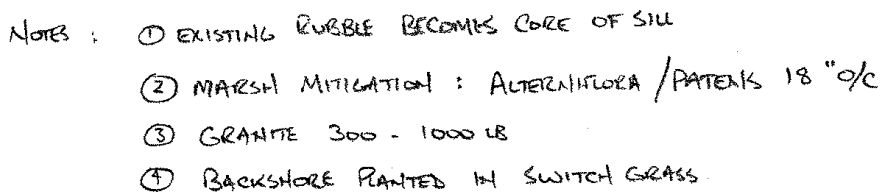 NOTES : ① EXISTING RUBBLE BECOMES CORE OF SILL
② MARSH MITIGATION : ALTERNIFLORA / PATENS 18 "O/C
③ GRANITE 300 - 1000 LB
④ BACKSHORE PLANTED IN SWITCH GRASS